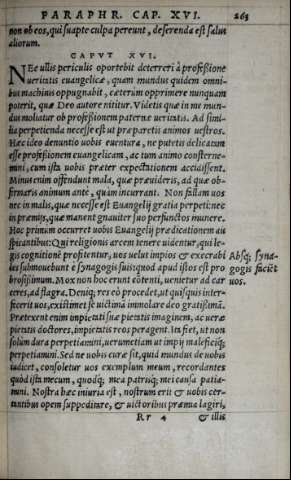 PARAPHR. CAP. XVI. 263
non ob eos, qui suapte culpa pereunt, deserenda est salus
aliorum.
CAPVT XVI.
NE ullis periculis oportebit deterreri à professione
ueritatis euangelicæ, quam mundus quidem omni-
bus machinis oppugnabit, cæterum opprimere nunquam
poterit, quæ Deo autore nititur. Videtis quæ in me mun-
dus moliatur ob professionem paternæ ueritatis. Ad simi-
lia perpetienda necesse est ut præparetis animos uestros.
Hæc ideo denuntio uobis euentura, ne putetis delicatam
esse professionem euangelicam, ac tum animo consterne-
mini, cum ista uobis præter expectationem accidissent.
Minus enim offendunt mala, quæ præuideris, ad quæ ob-
firmaris animum ante, quàm incurrant. Non fallam uos
nec in malis, quæ necesse est Euangelij gratia perpeti: nec
in præmijs, quæ manent gnauiter suo perfunctos munere.
Hoc primum occurret uobis Euangelij prædicationem au
spicantibus: Qui religionis arcem tenere uidentur, qui le-
gis cognitionē profitentur, uos uelut impios & execrabi
les submouebunt è synagogis suis: quod apud istos est pro
brosissimum. Mox non hoc erunt cōtenti, uenietur ad car
ceres, ad flagra. Deniq; res eò procedet, ut quisquis inter-
fecerit uos, existimet se uictimā immolare deo gratissimā.
Prætexent enim impietati suæ pietatis imaginem, ac ueræ
pietatis doctores, impietatis reos peragent. Ita fiet, ut non
solùm dura perpetiamini, uerumetiam ut impij maleficiq́;
perpetiamini. Sed ne uobis curæ sit, quid mundus de uobis
iudicet, consoletur uos exemplum meum, recordantes
quòd ista mecum, quodq́; mea patrisq́; mei causa patia-
mini. Nostra hæc iniuria est, nostrum erit & uobis cer-
tantibus opem suppeditare, & uictoribus præmia largiri,
Rr 4 & illis
Absq; syna-
gogis faciēt
uos.